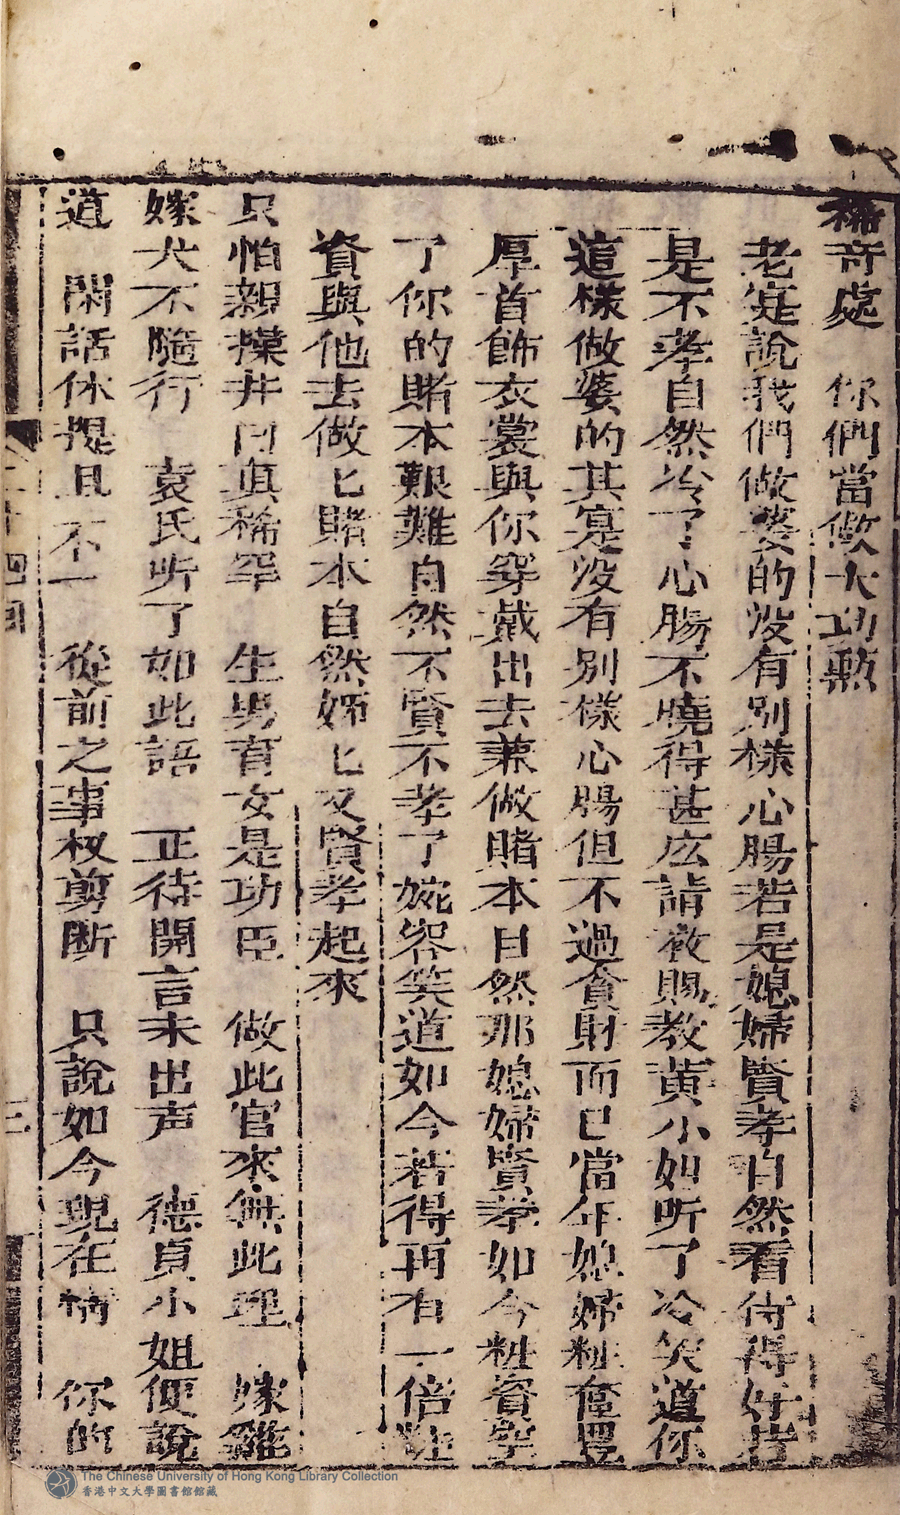 稀奇處　你們當做大功勲
老寔說我們做婆的沒有別樣心腸若是媳婦賢孝自然看待得好若
是不孝自然冷了心腸不曉得甚庅請教賜教黃小姐听了冷笑道你
這樣做婆的其寔沒有別樣心腸但不過貪財而已當年媳婦粧奩豊
厚首飾衣裳與你穿戴出去兼做賭本自然那媳婦賢孝如今粧資空
了你的賭本艱難自然不賢不孝了婉容笑道如今若得再有一倍粧
資與他去做匕賭本自然姊匕又賢孝起來
只怕親操井臼真稀罕　生男育女是功臣　做此官來無此理　嫁雞
嫁犬不隨行　袁氏听了如此語　正待開言未出声　德貞小姐便說
道　閑話休提且不一　從前之事权剪断　只說如今現在情　你的
二十四回
三
The Chinese University of Hong Kong Library Collection
香港中文大學圖書館館藏